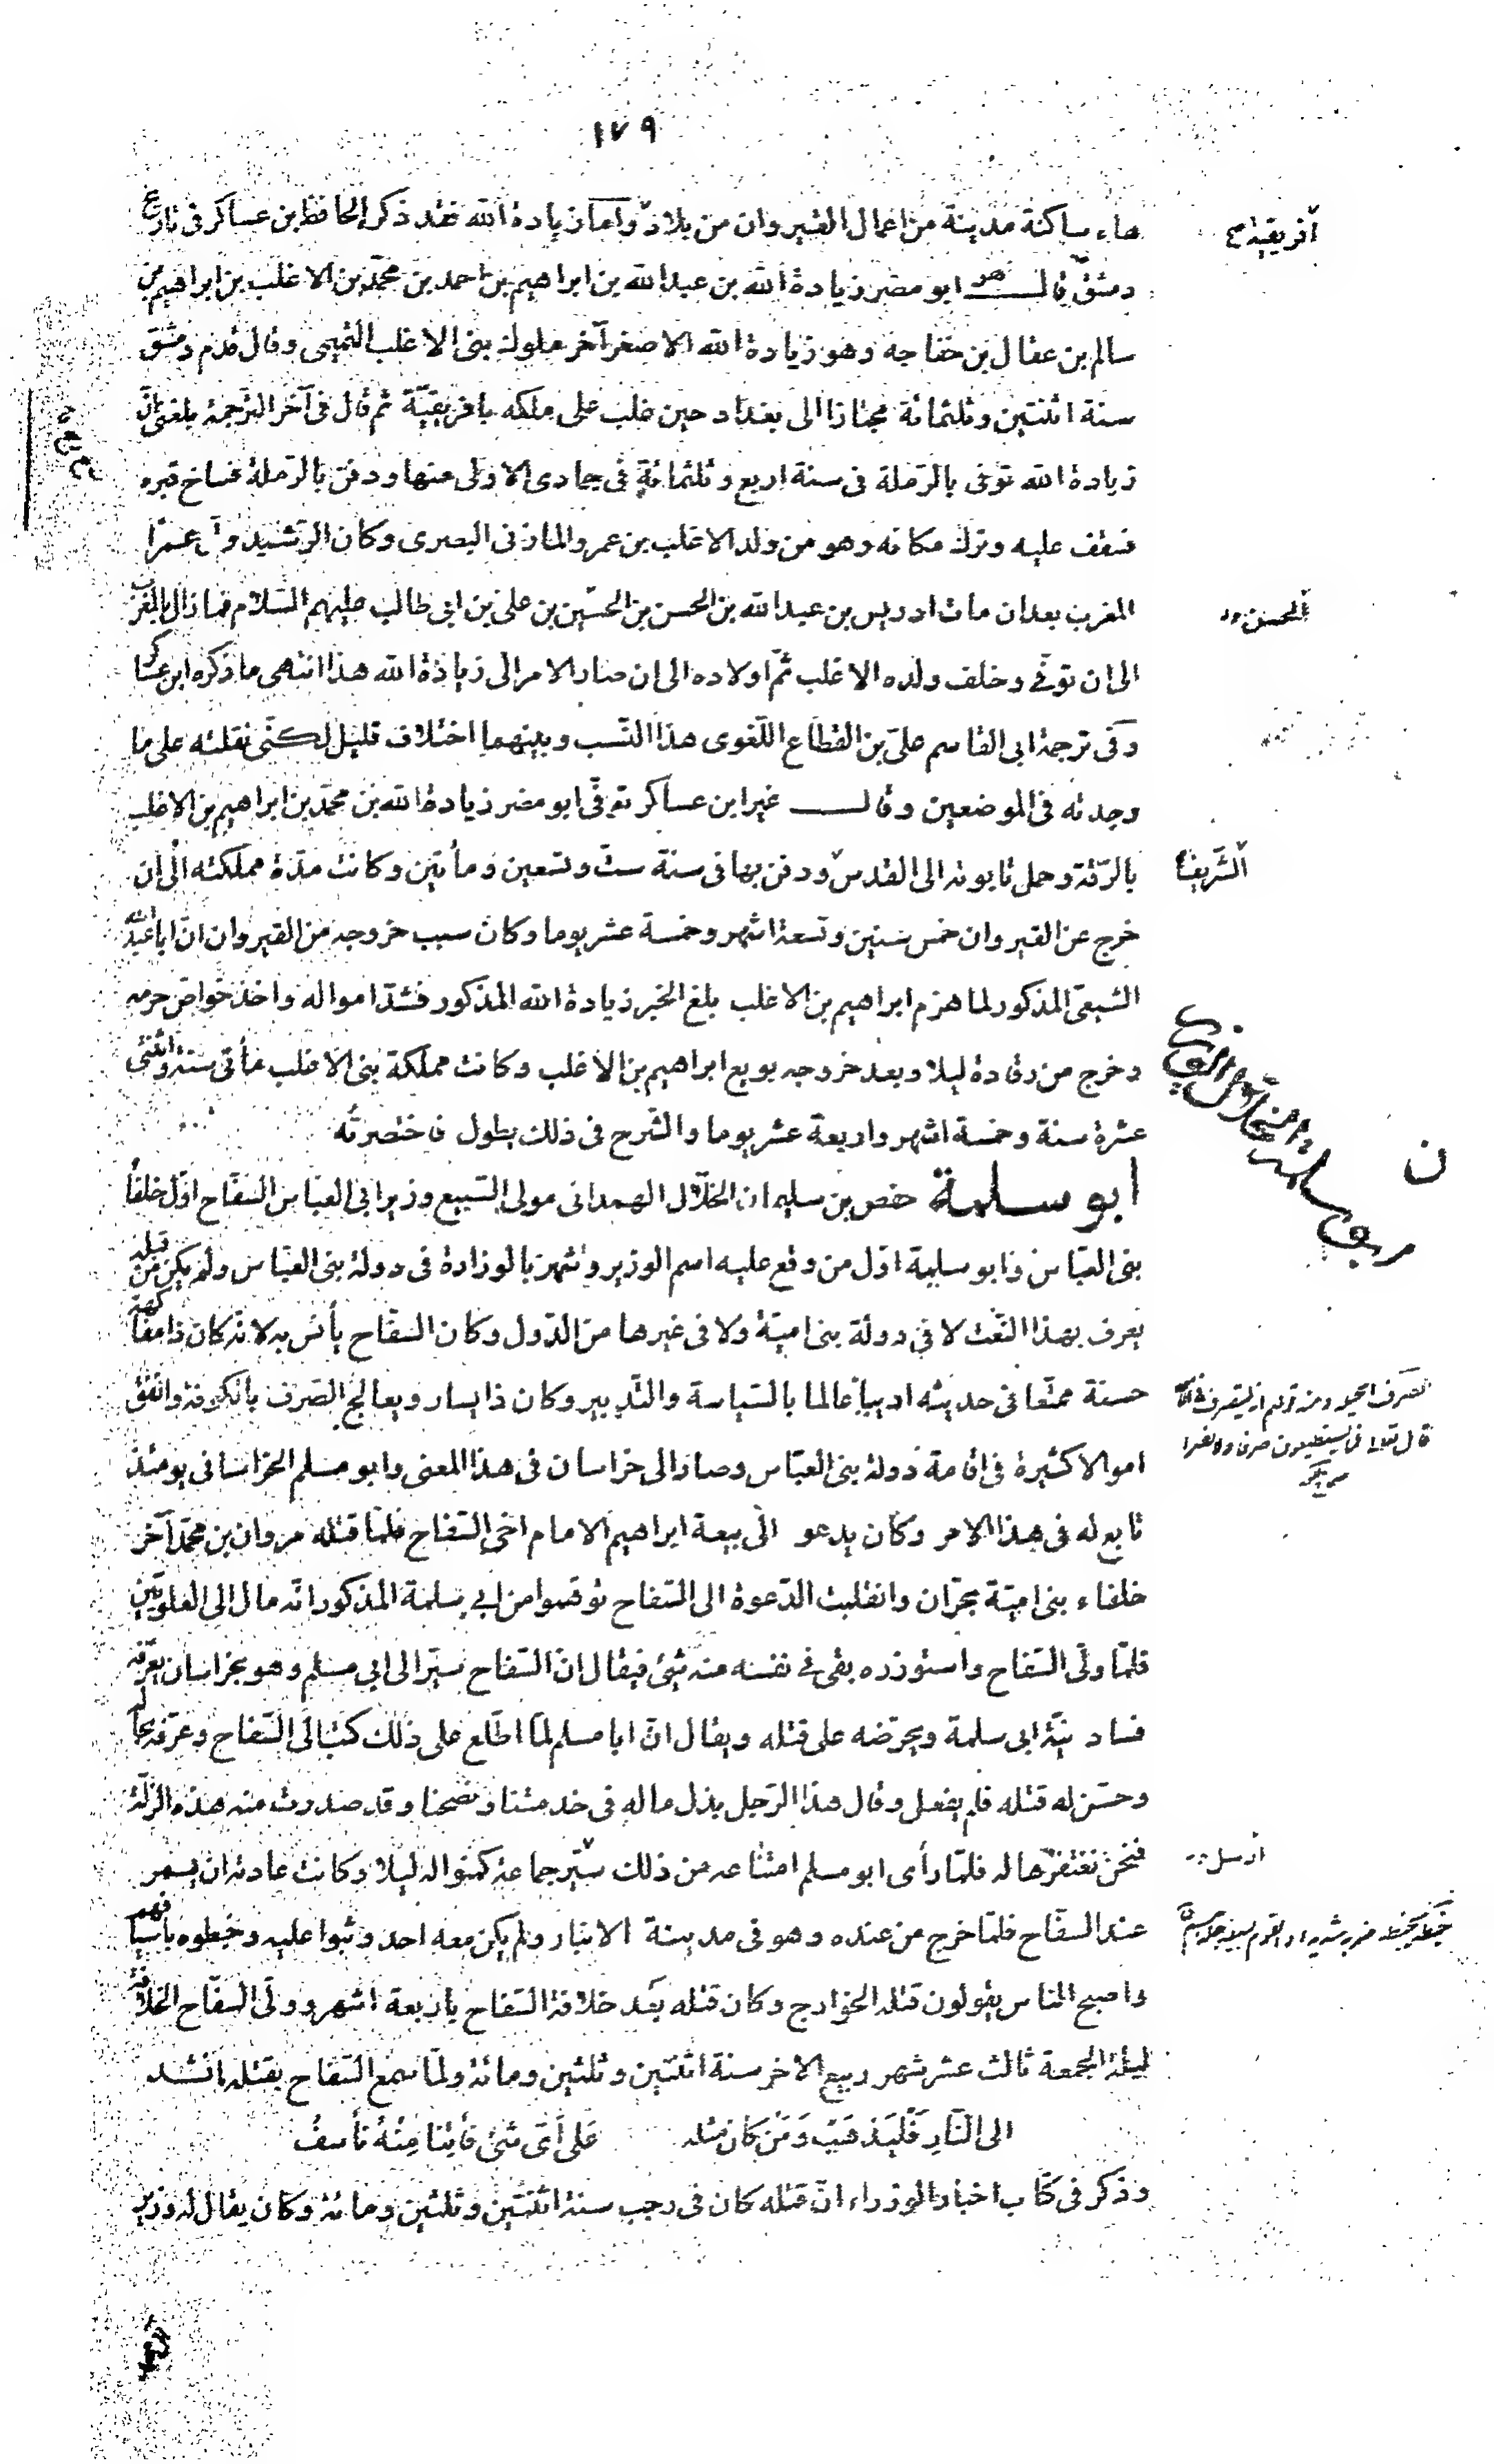 ١٧٩
هاء ساكنة مدينة من اعمال القيروان من بلاد واما زيادة الله فقد ذكر الحافظ بن عساكر فى تاريخ
افريقية صح
دمشق فقال هو ابو مضر زيادة الله بن عبدالله بن ابراهيم بن احمد بن محمد بن الاغلب بن ابراهيم بن
سالم بن عقال بن خفاجه وهو زيادة الله الاصغر آخر ملوك بنى الاغلب التميمى وقال قدم دمشق
سنة اثنتين وثلثمائة مجتازا الى بغداد حين غلب على ملكه بافريقيّة ثم قال فى آخر الترجمة بلغنى انّ
زيادة الله توفى بالرّملة فى سنة اربع وثلثمائة فى جمادى الاولى منها ودفن بالرّملة فساخ قبره
فسقف عليه وترك مكانه وهو من ولد الاغلب بن عمرو المازنى البصرى وكان الرّشيد ولى عمرا
المغرب بعد ان مات ادريس بن عبدالله بن الحسن بن الحسين بن على بن ابى طالب عليهم السّلام فما زال بالمغرب
الحسن
الى ان توفّى وخلف ولده الاغلب ثمّ اولاده الى ان صار الامر الى زيادة الله هذا انتهى ما ذكره ابن عساكر
وفى ترجمة ابى القاسم علىّ بن القطاع اللّغوى هذا النّسب وبينهما اختلاف قليل لكنّى نقلته على ما
وجدته فى الموضعين وقال غير ابن عساكر توفّى ابو مضر زيادة الله بن محمّد بن ابراهيم بن الاغلب
بالرّقة وحمل تابوته الى القدس ودفن بها فى سنة ستّ وتسعين ومأتين وكانت مدّة مملكته الى ان
الشّريف
خرج عن القيروان خمس سنين وتسعة اشهر وخمسة عشر يوما وكان سبب خروجه من القيروان انّ ابا عبدالله
الشيعى المذكور لما هزم ابراهيم بن الاغلب بلغ الخبر زيادة الله المذكور فشدّ امواله واخذ خواصّ حرمه
وخرج من رقادة ليلا وبعد خروجه بويع ابراهيم بن الاغلب وكانت مملكة بنى الاغلب مأتى سنة واثنتى
عشرة سنة وخمسة اشهر واربعة عشر يوما والشّرح فى ذلك يطول فاختصرته
ن
ابو سلمة حفص بن سليمان الخلّال الهمدانى مولى السّبيع وزير ابى العبّاس السفّاح اوّل خلفاء
بنى العبّاس وابو سلمة اوّل من وقع عليه اسم الوزير وشهر بالوزارة فى دولة بنى العبّاس ولم يكن من قبله
يعرف بهذا النّعت لا فى دولة بنى اميّة ولا فى غيرها من الدّول وكان السفّاح يأنس به لانه كان ذا مفاكهة
حسنة ممتّعا فى حديثه اديبا عالما بالسّياسة والتّدبير وكان ذا يسار ويعالج الصّرف بالكوفة وانفق
قال تعالى فما يستطيعون صرفا ولا نصرا
اموالا كثيرة فى اقامة دولة بنى العبّاس وصار الى خراسان فى هذا المعنى وابو مسلم الخراسانى يومئذ
تابع له فى هذا الامر وكان يدعو الى بيعة ابراهيم الامام اخى السّفاح فلمّا قتله مروان بن محمّد آخر
خلفاء بنى اميّة بحرّان وانقلبت الدّعوة الى السّفاح توهّموا من ابى سلمة المذكور انّه مال الى العلويّين
فلمّا ولّى السّفاح واستوزره بقى فى نفسه منه شئ فيقال انّ السّفاح سيّر الى ابى مسلم وهو بخراسان يعرّفه
فساد نيّة ابى سلمة ويحرّضه على قتله ويقال انّ ابا مسلم لمّا اطّلع على ذلك كتب الى السّفاح وعرّفه بحاله
وحسّن له قتله فلم يفعل وقال هذا الرّجل بذل ماله فى خدمتنا ونصحنا وقد صدرت منه هذه الزّلّة
فنحن نغتفرها له فلمّا رأى ابو مسلم امتناعه من ذلك سيّر جماعة كمنوا له ليلا وكانت عادته ان يسمر
ارسل
عند السفّاح فلمّا خرج من عنده وهو فى مدينة الانبار ولم يكن معه احد وثبوا عليه وخبطوه باسيافهم
واصبح الناس يقولون قتله الخوارج وكان قتله بعد خلافة السّفاح باربعة اشهر وولّى السفّاح الخلافة
ليلة الجمعة ثالث عشر شهر ربيع الاخر سنة اثنتين وثلثين ومائة ولمّا سمع السّفاح بقتله انشد
الى النّارِ فَلْيَذهَبْ وَمَن كانَ مثله عَلى أَىّ شئٍ فاتَنا مِنْهُ نَأسفُ
وذكر فى كتاب اخبار الوزراء انّ قتله كان فى رجب سنة اثنتين وثلثين ومائة وكان يقال له وزير